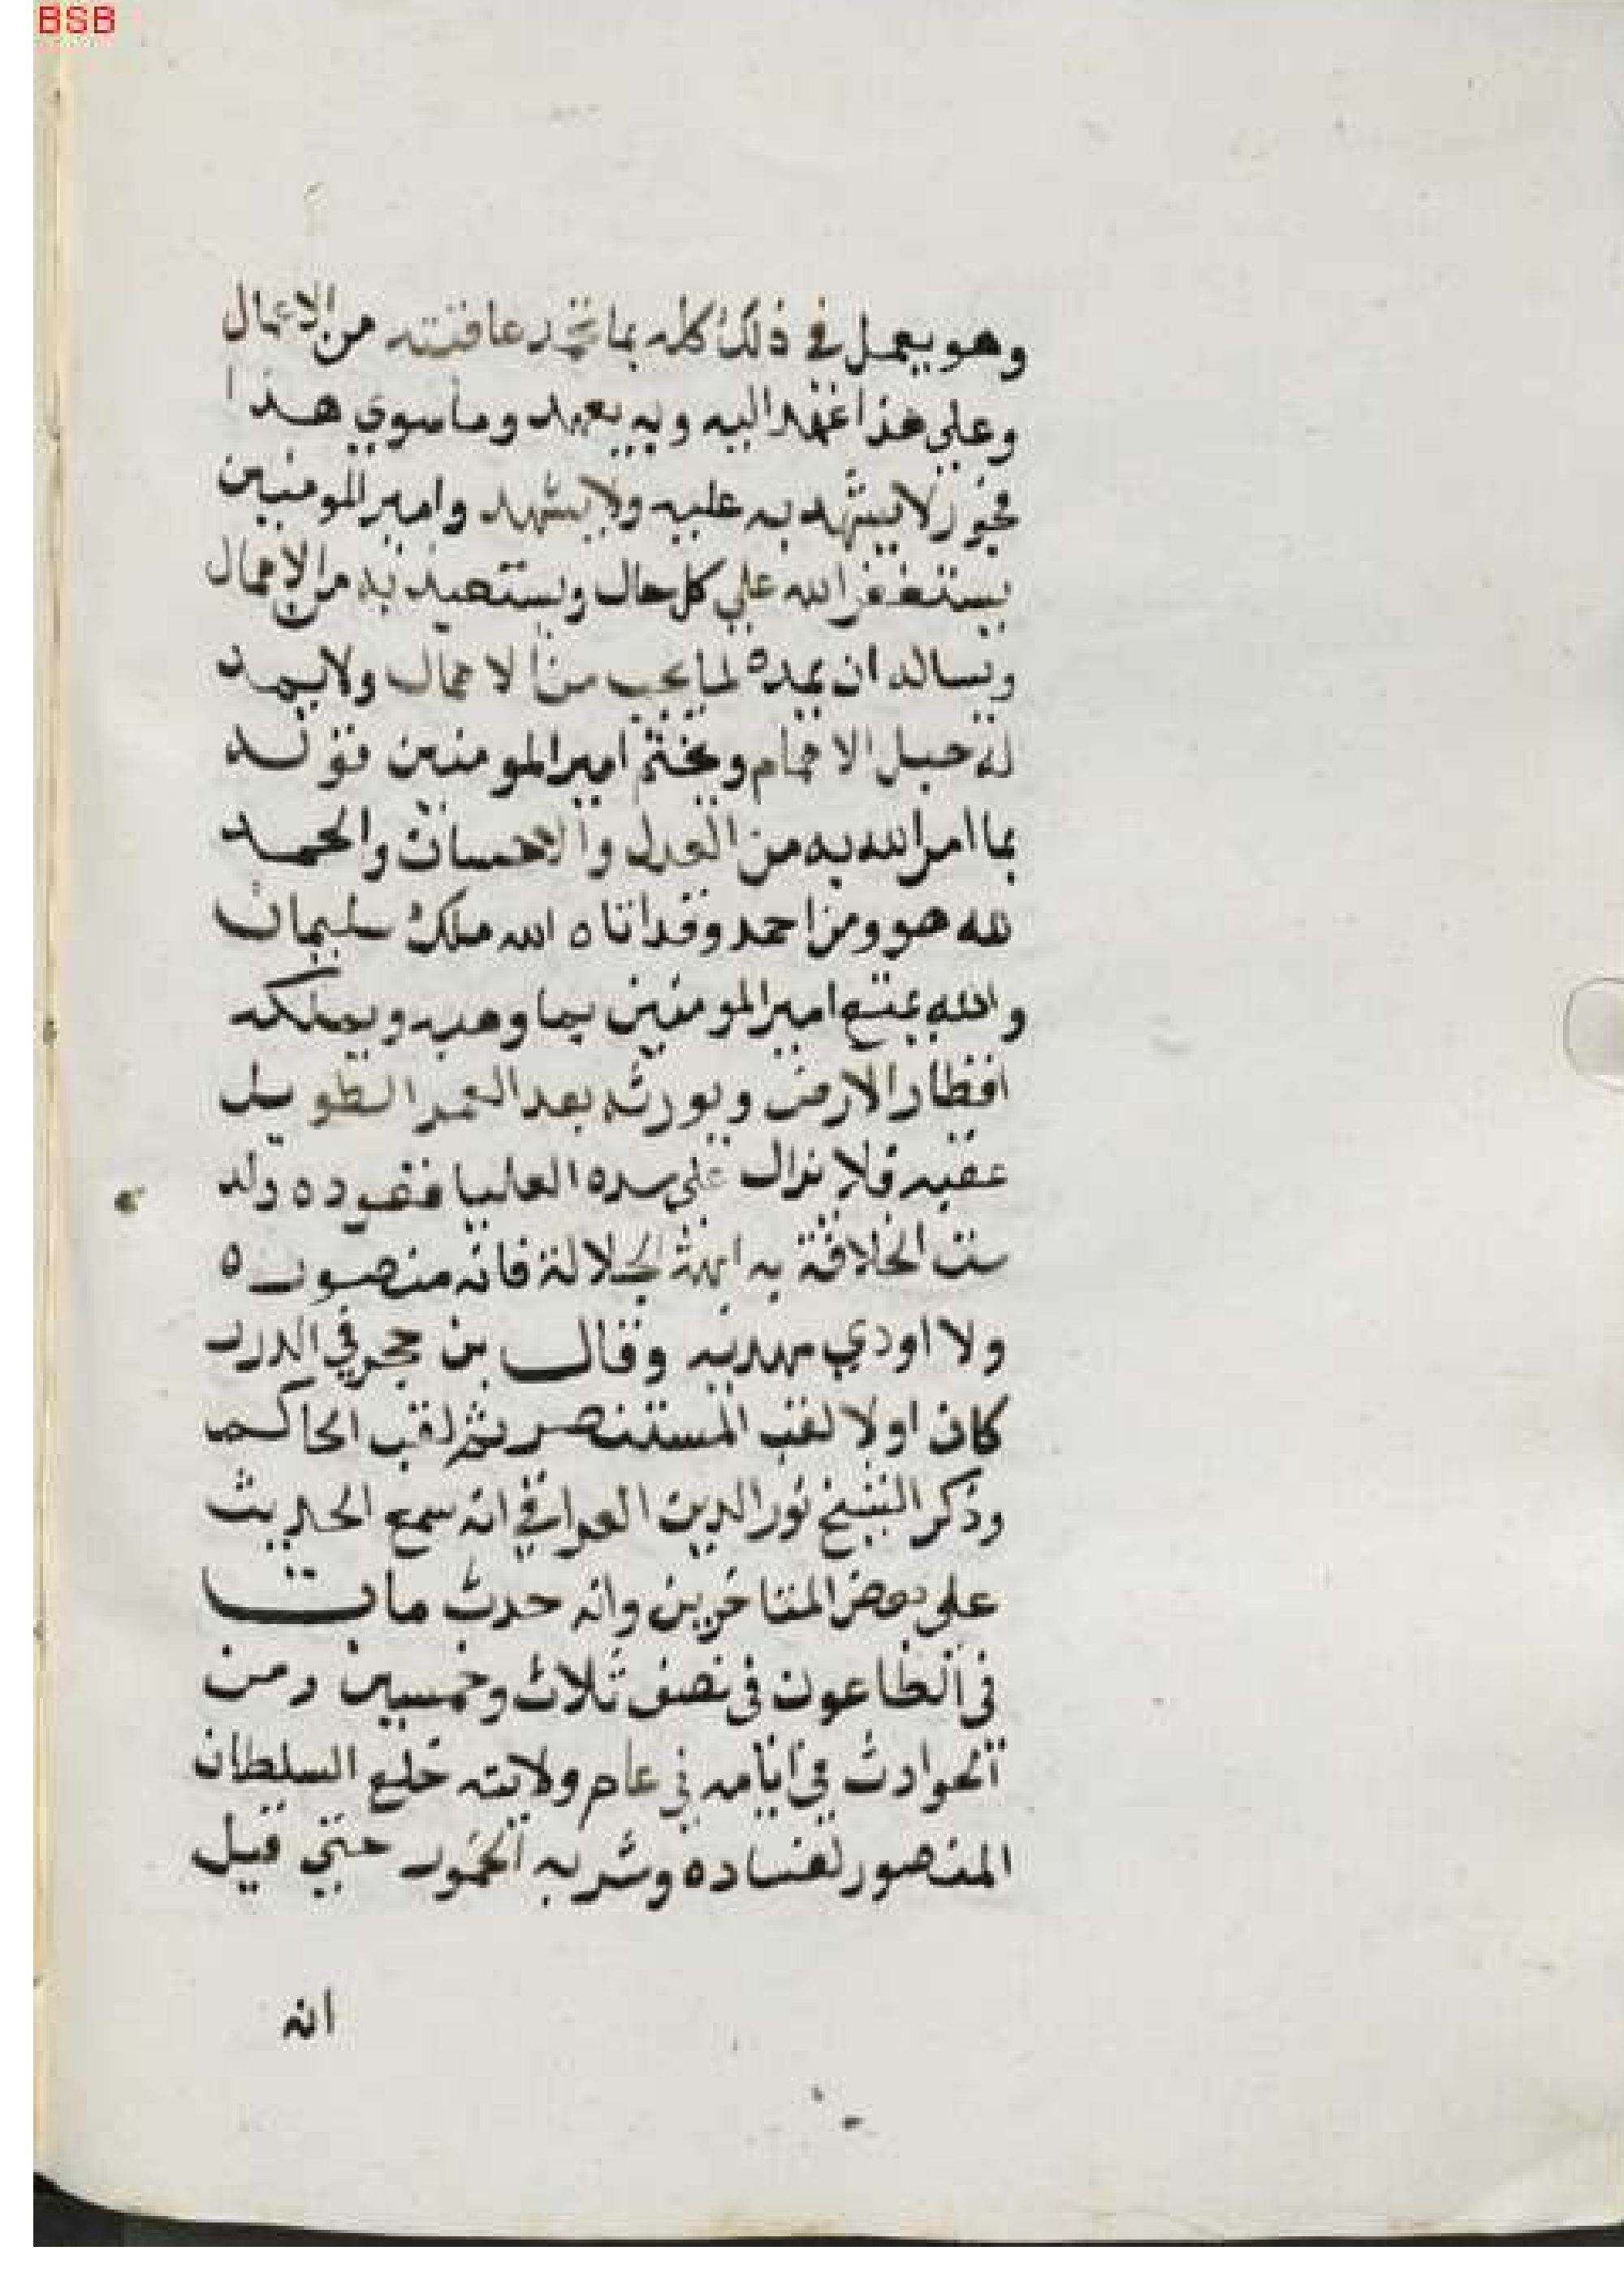 BSB
وهو يعمل في ذلك كله بما تحمد عاقبته من الاعمال
وعلى هذا عهد اليه وبه يعهد وما سوى هذا
فجور لا يشهد به عليه ولا يشهد وامير المومنين
يستغفر الله علي كل حال ويستعيذ به من الاهمال
ويساله ان يمده لما يحب من الا مال ولا يمد
له حبل الامهال ويختم امير المومنين قوله
بما امر الله به من العدل والاحسان والحمد
لله هو ومن احمد وقد اتاه الله ملك سليمان
والله يمتع امير المومنين بما وهبه ويملكه
اقطار الارض ويورثه بعد العمر الطويل
عقبه فلا يزال على سده العليا قعوده ولد
ست الخلافة به ابهة الجلالة فانه منصور ه
ولا اودي مهديه وقال بن حجر في الدرر
كان اولا لقب المستنصر ثم لقب الحاكم
وذكر الشيخ نور الدين العراقي انه سمع الحديث
على بعض المتاخرين وانه حدث مات
في الطاعون في نصف ثلاث وخمسين ومن
الحوادث في ايامه في عام ولايته خلع السلطان
المنصور لفساده وشربه الخمور حتي قيل
انه